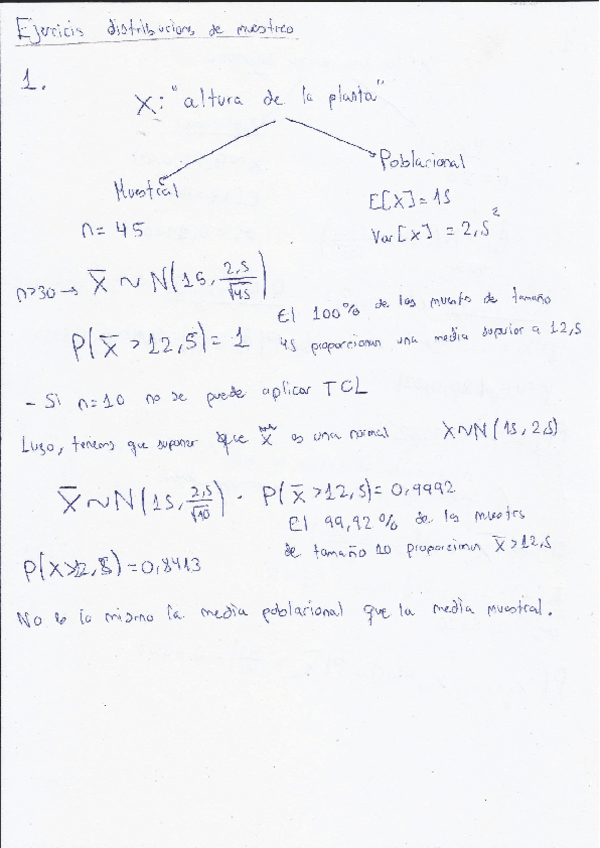 Ejercicis distribucions de muestreo
1.
X: "altura de la planta"
Muestral
n = 45
Poblacional
E[X] = 15
Var[X] = 2,5²
n>30 → X̄ ~ N(15, 2,5/√45)
P(X̄ > 12,5) = 1
El 100% de las muests de tamaño
45 proporcionan una media superior a 12,5
- Si n=10 no se puede aplicar TCL
Luego, tenems que suponer que X es una normal X~N(15, 2,5)
X̄ ~ N(15, 2,5/√10) . P(X̄ > 12,5) = 0,9992
El 99,92% de las muests
de tamaño 10 proporcionan X̄ > 12,5
P(X>12,5) = 0,8413
No es lo mismo la media poblacional que la media muestral.